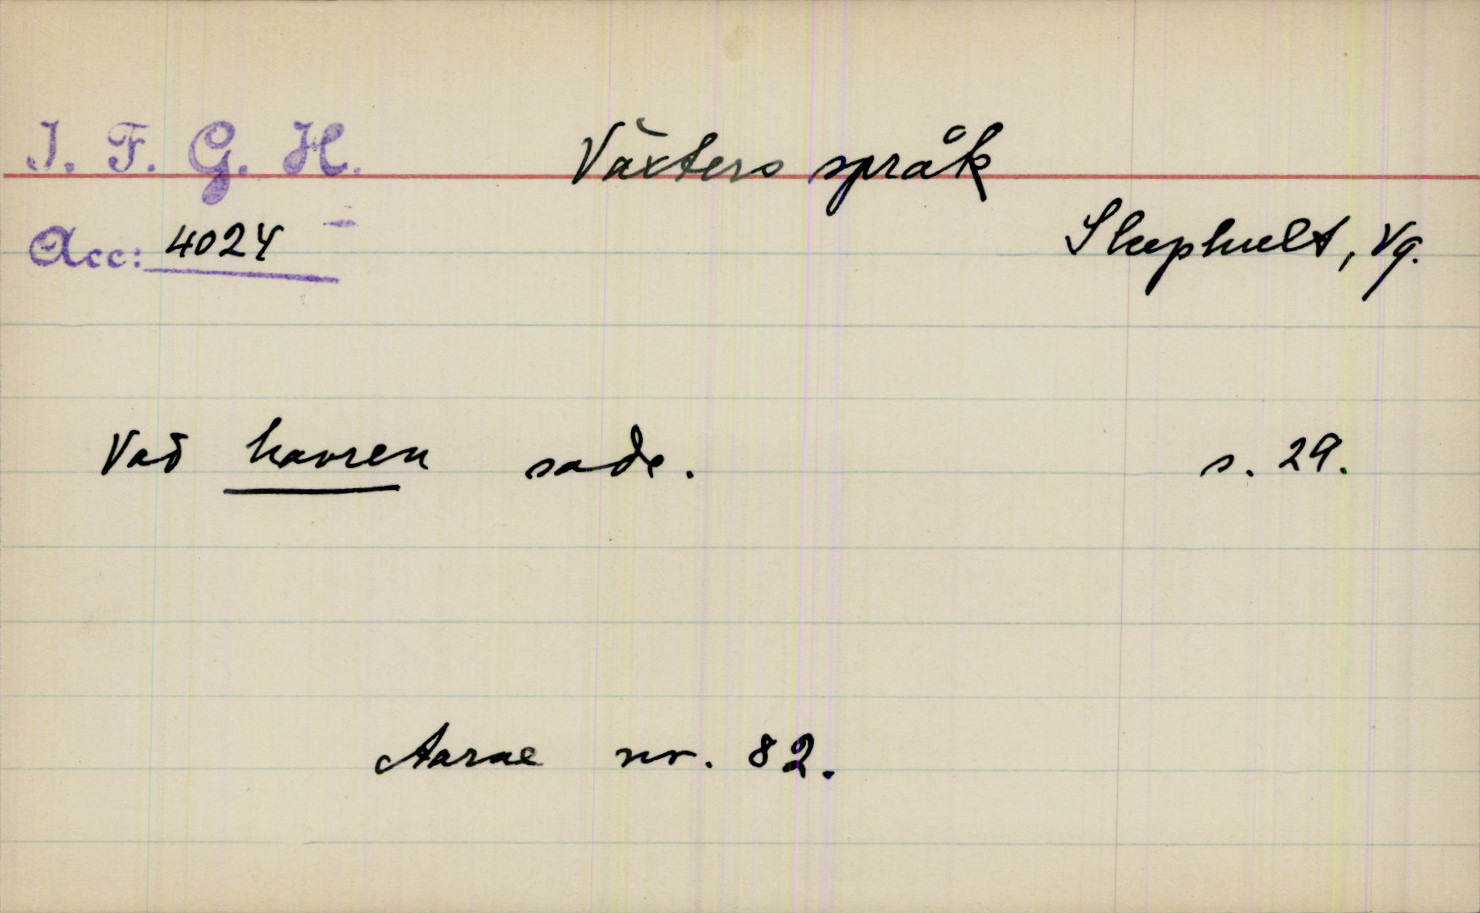 I. F. G. H.
Växters språk
Acc: 4024
Skephult, Vg.
Vad havren sade.
s. 29.
Aarne nr. 82.